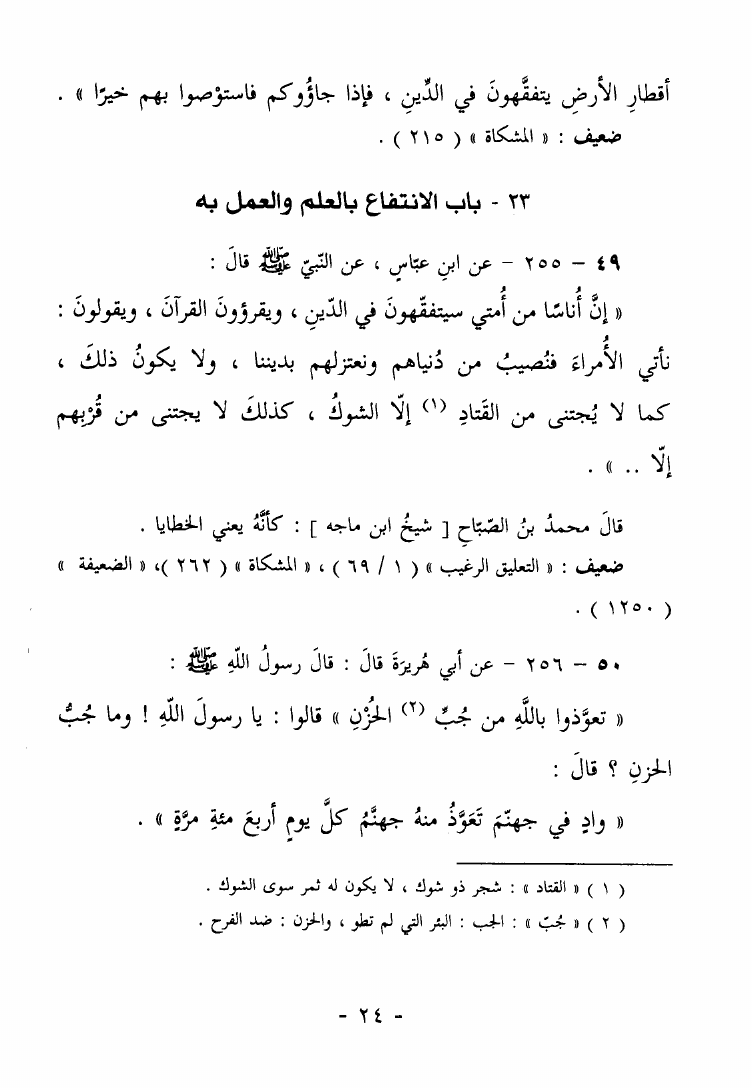 أقطارِ الأرضِ يتفقَّهونَ في الدِّينِ ، فإذا جاؤُوكم فاستوْصوا بهم خيرًا » .
ضعيف : « المشكاة » ( ٢١٥ ) .
٢٣ - باب الانتفاع بالعلم والعمل به
٤٩ – ٢٥٥ – عن ابنِ عبّاسٍ ، عن النّبيّ ﷺ قالَ :
« إنَّ أُناسًا من أُمتي سيتفقّهونَ في الدّينِ ، ويقرؤونَ القرآنَ ، ويقولونَ :
نأتي الأُمراءَ فنُصيبُ من دُنياهم ونعتزلهم بديننا ، ولا يكونُ ذلكَ ،
كما لا يُجتنى من القَتادِ (١) إلّا الشوكُ ، كذلكَ لا يجتنى من قُرْبِهم
إلّا .. » .
قالَ محمدُ بنُ الصّبّاحِ [ شيخُ ابن ماجه ] : كأنَّهُ يعني الخطايا .
ضعيف : « التعليق الرغيب » ( ١ / ٦٩ ) ، « المشكاة » ( ٢٦٢ )، « الضعيفة »
( ١٢٥٠ ) .
٥٠ – ٢٥٦ – عن أبي هُريرَةَ قالَ : قالَ رسولُ اللّهِ ﷺ :
« تعوَّذوا باللَّهِ من جُبِّ (٢) الحُزْنِ » قالوا : يا رسولَ اللّهِ ! وما جُبُّ
الحزنِ ؟ قالَ :
« وادٍ في جهنّمَ تَعَوَّذُ منهُ جهنَّمُ كلَّ يومٍ أربعَ مئةِ مرَّةٍ » .
( ١ ) « القتاد » : شجر ذو شوك ، لا يكون له ثمر سوى الشوك .
( ٢ ) « جُبّ » : الجب : البئر التي لم تطو ، والحزن : ضد الفرح .
- ٢٤ -